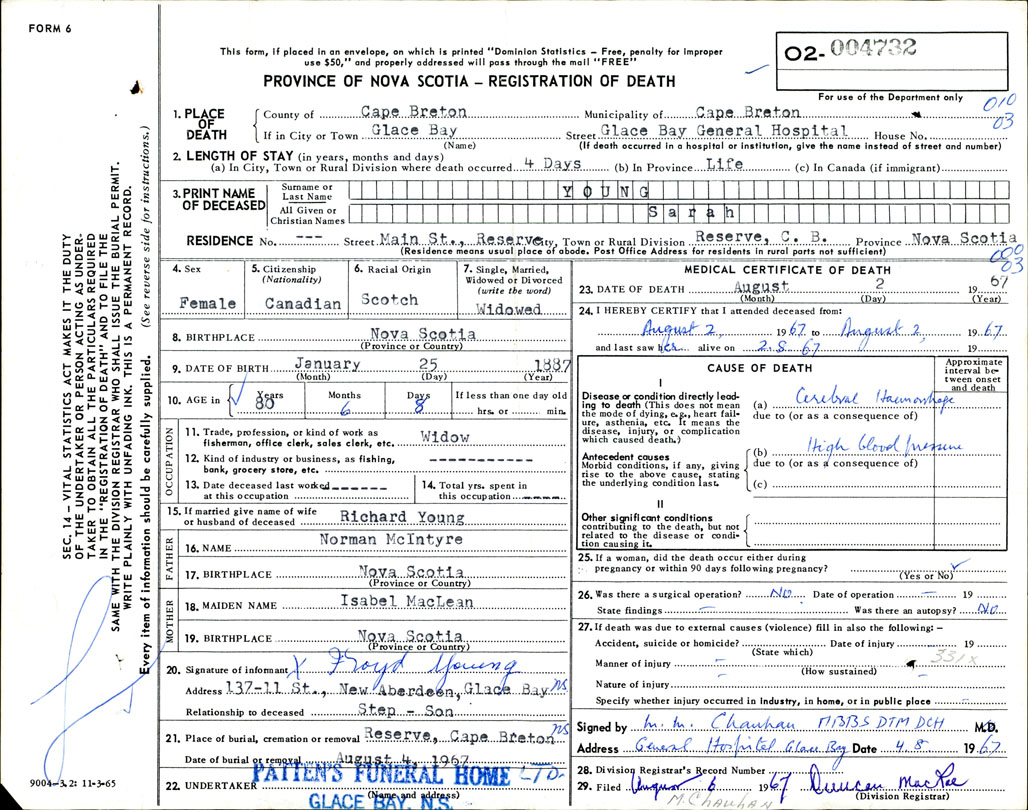 FORM 6
This form, if placed in an envelope, on which is printed "Dominion Statistics – Free, penalty for improper
use $50," and properly addressed will pass through the mail "FREE"
PROVINCE OF NOVA SCOTIA – REGISTRATION OF DEATH
02- 004732
For use of the Department only
010
03
1. PLACE OF DEATH
County of Cape Breton Municipality of Cape Breton
If in City or Town Glace Bay Street Glace Bay General Hospital House No.
(Name) (If death occurred in a hospital or institution, give the name instead of street and number)
2. LENGTH OF STAY (in years, months and days)
(a) In City, Town or Rural Division where death occurred 4 Days (b) In Province Life (c) In Canada (if immigrant)
3. PRINT NAME OF DECEASED
Surname or Last Name YOUNG
All Given or Christian Names Sarah
RESIDENCE No. --- Street Main St., Reserve City, Town or Rural Division Reserve, C. B. Province Nova Scotia
(Residence means usual place of abode. Post Office Address for residents in rural parts not sufficient)
000
03
4. Sex
Female
5. Citizenship
(Nationality)
Canadian
6. Racial Origin
Scotch
7. Single, Married,
Widowed or Divorced
(write the word)
Widowed
8. BIRTHPLACE Nova Scotia
(Province or Country)
9. DATE OF BIRTH January 25 1887
(Month) (Day) (Year)
10. AGE in Years Months Days If less than one day old
80 6 8 hrs. or min.
OCCUPATION
11. Trade, profession, or kind of work as
fisherman, office clerk, sales clerk, etc. Widow
12. Kind of industry or business, as fishing,
bank, grocery store, etc. ------------
13. Date deceased last worked -------
at this occupation
14. Total yrs. spent in
this occupation ----
15. If married give name of wife
or husband of deceased Richard Young
FATHER
16. NAME Norman McIntyre
17. BIRTHPLACE Nova Scotia
(Province or Country)
MOTHER
18. MAIDEN NAME Isabel MacLean
19. BIRTHPLACE Nova Scotia
(Province or Country)
20. Signature of informant X Floyd Young
Address 137-11 St., New Aberdeen, Glace Bay NS
Relationship to deceased Step - Son
21. Place of burial, cremation or removal Reserve, Cape Breton NS
Date of burial or removal August 4, 1967
22. UNDERTAKER PATTEN'S FUNERAL HOME LTD.
(Name and address)
GLACE BAY, N.S.
MEDICAL CERTIFICATE OF DEATH
23. DATE OF DEATH August 2 19 67
(Month) (Day) (Year)
24. I HEREBY CERTIFY that I attended deceased from:
August 2 1967 to August 2, 1967
and last saw her alive on 2.8.67 19
CAUSE OF DEATH
Approximate
interval be-
tween onset
and death
I
Disease or condition directly lead-
ing to death (This does not mean
the mode of dying, e.g., heart fail-
ure, asthenia, etc. It means the
disease, injury, or complication
which caused death.)
(a) Cerebral Haemorrhage
due to (or as a consequence of)
Antecedent causes
Morbid conditions, if any, giving
rise to the above cause, stating
the underlying condition last.
(b) High blood pressure
due to (or as a consequence of)
(c)
II
Other significant conditions
contributing to the death, but not
related to the disease or condi-
tion causing it.
25. If a woman, did the death occur either during
pregnancy or within 90 days following pregnancy?
(Yes or No)
26. Was there a surgical operation? NO Date of operation — 19
State findings — Was there an autopsy? NO
27. If death was due to external causes (violence) fill in also the following: –
Accident, suicide or homicide? Date of injury 19
(State which)
331x
Manner of injury —
(How sustained)
Nature of injury
Specify whether injury occurred in Industry, in home, or in public place
Signed by M. M. Chauhan MBBS DTM DCH M.D.
Address General Hospital Glace Bay Date 4.8 1967
28. Division Registrar's Record Number
29. Filed August 6 1967 Duncan MacRae
(Division Registrar)
M. Chauhan
SEC. 14 – VITAL STATISTICS ACT MAKES IT THE DUTY
OF THE UNDERTAKER OR PERSON ACTING AS UNDER-
TAKER TO OBTAIN ALL THE PARTICULARS REQUIRED
IN THE "REGISTRATION OF DEATH" AND TO FILE THE
SAME WITH THE DIVISION REGISTRAR WHO SHALL ISSUE THE BURIAL PERMIT.
WRITE PLAINLY WITH UNFADING INK. THIS IS A PERMANENT RECORD.
Every item of information should be carefully supplied. (See reverse side for instructions.)
9004–3.2: 11-3-65